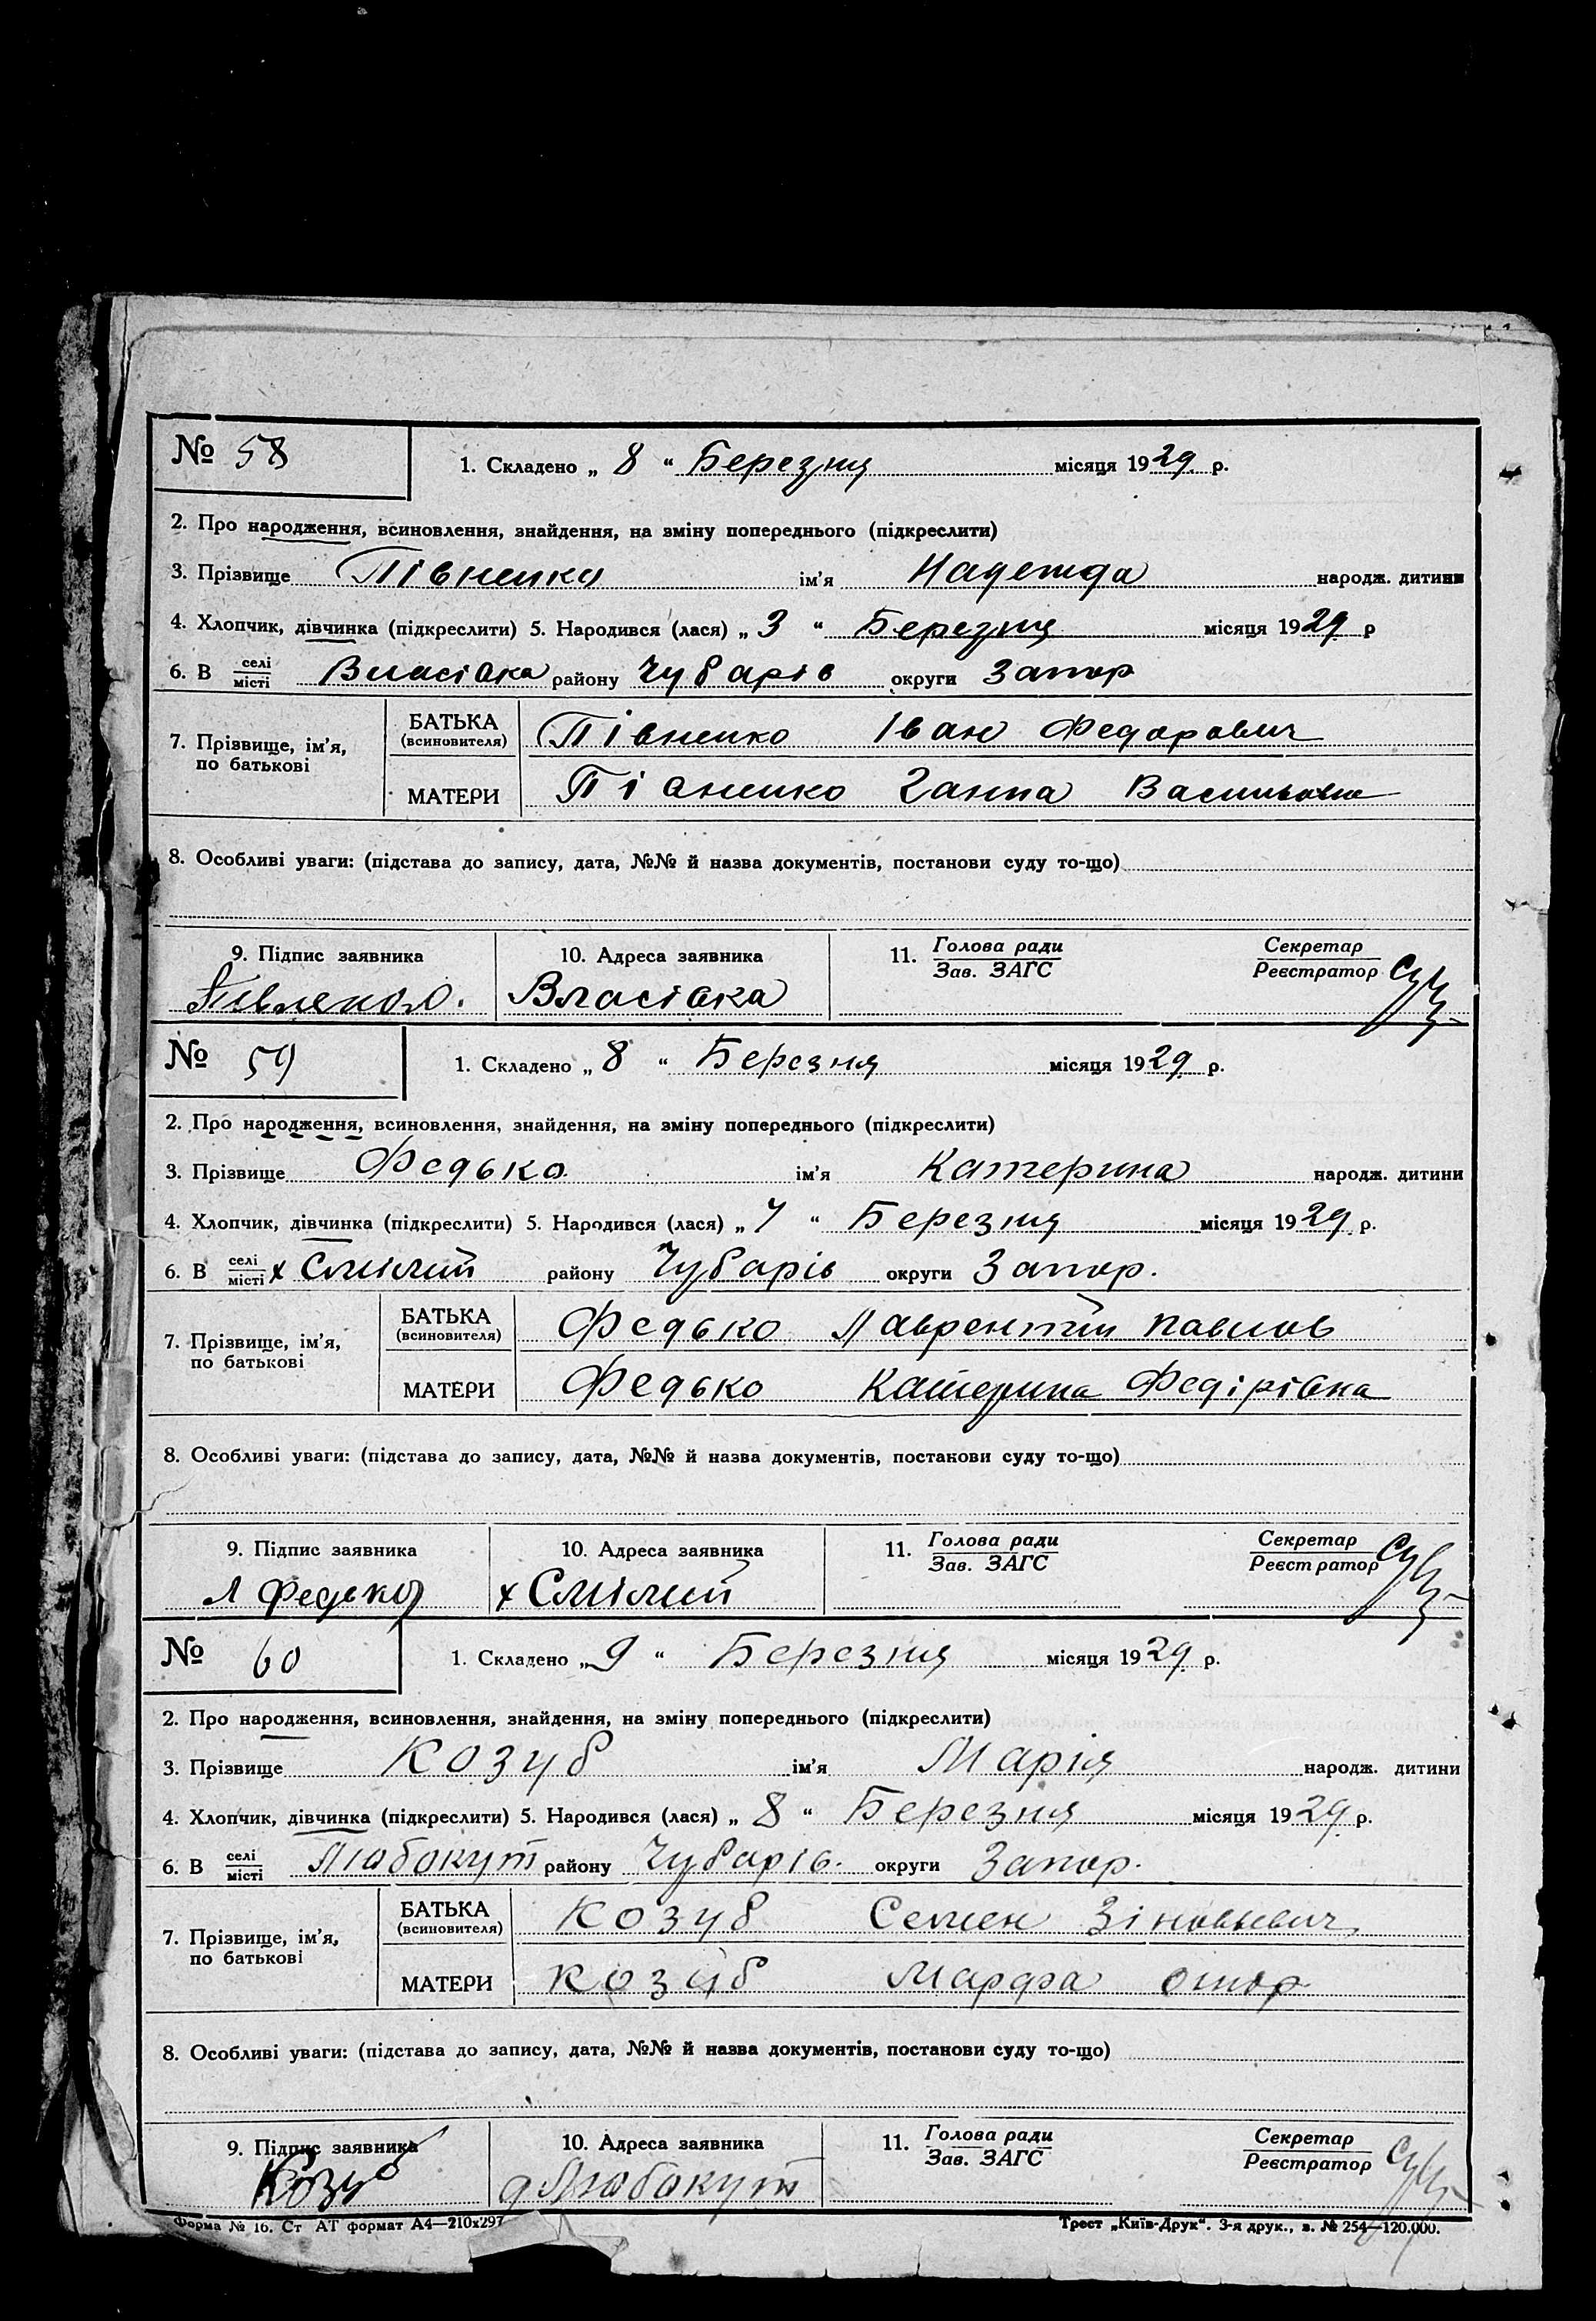 № 58
1. Складено „ 8 “ Березня місяця 1929 р.
2. Про народження, всиновлення, знайдення, на зміну попереднього (підкреслити)
3. Прізвище Півненко ім'я Надежда народж. дитини
4. Хлопчик, дівчинка (підкреслити) 5. Народився (лася) „ 3 “ Березня місяця 1929 р
6. В селі місті Власівка району Чубарів округи Запор
7. Прізвище, ім'я, по батькові
БАТЬКА (всиновителя) Півненко Іван Федорович
МАТЕРИ Півненко Ганна Васильовна
8. Особливі уваги: (підстава до запису, дата, №№ й назва документів, постанови суду то-що)
9. Підпис заявника 10. Адреса заявника 11. Голова ради Зав. ЗАГС Секретар Реєстратор
Власівка
№ 59
1. Складено „ 8 “ Березня місяця 1929 р.
2. Про народження, всиновлення, знайдення, на зміну попереднього (підкреслити)
3. Прізвище Федько ім'я Катерина народж. дитини
4. Хлопчик, дівчинка (підкреслити) 5. Народився (лася) „ “ Березня місяця 1929 р.
6. В селі місті х Смілий району Чубарів округи Запор.
7. Прізвище, ім'я, по батькові
БАТЬКА (всиновителя) Федько Лаврентій Павлов
МАТЕРИ Федько Катерина Федірівна
8. Особливі уваги: (підстава до запису, дата, №№ й назва документів, постанови суду то-що)
9. Підпис заявника 10. Адреса заявника 11. Голова ради Зав. ЗАГС Секретар Реєстратор
Л Федько х Смілий
№ 60
1. Складено „ 9 “ Березня місяця 1929 р.
2. Про народження, всиновлення, знайдення, на зміну попереднього (підкреслити)
3. Прізвище Козуб ім'я Марія народж. дитини
4. Хлопчик, дівчинка (підкреслити) 5. Народився (лася) „ 8 “ Березня місяця 1929 р.
6. В селі місті Любокут району Чубарів. округи Запор.
7. Прізвище, ім'я, по батькові
БАТЬКА (всиновителя) Козуб Семен Зіновьевич
МАТЕРИ Козуб Марфа
8. Особливі уваги: (підстава до запису, дата, №№ й назва документів, постанови суду то-що)
9. Підпис заявника 10. Адреса заявника 11. Голова ради Зав. ЗАГС Секретар Реєстратор
Козуб Любокут
Форма № 16. Ст АТ формат А4—210х297
Трест „Київ-Друк“. 3-я друк., з. № 254—120.000.